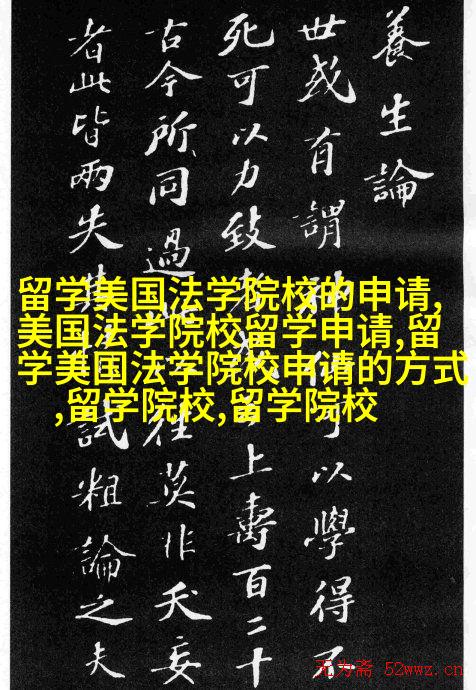 養生論
世或有謂神可以學得不
死可以力致上壽百二十
古今所同過往莫非夭妄
者此皆兩失其試粗論之夫
留学美国法学院校的申请,
美国法学院校留学申请,留
学美国法学院校申请的方式
,留学院校,留学院校
无为斋 52wwz.cn